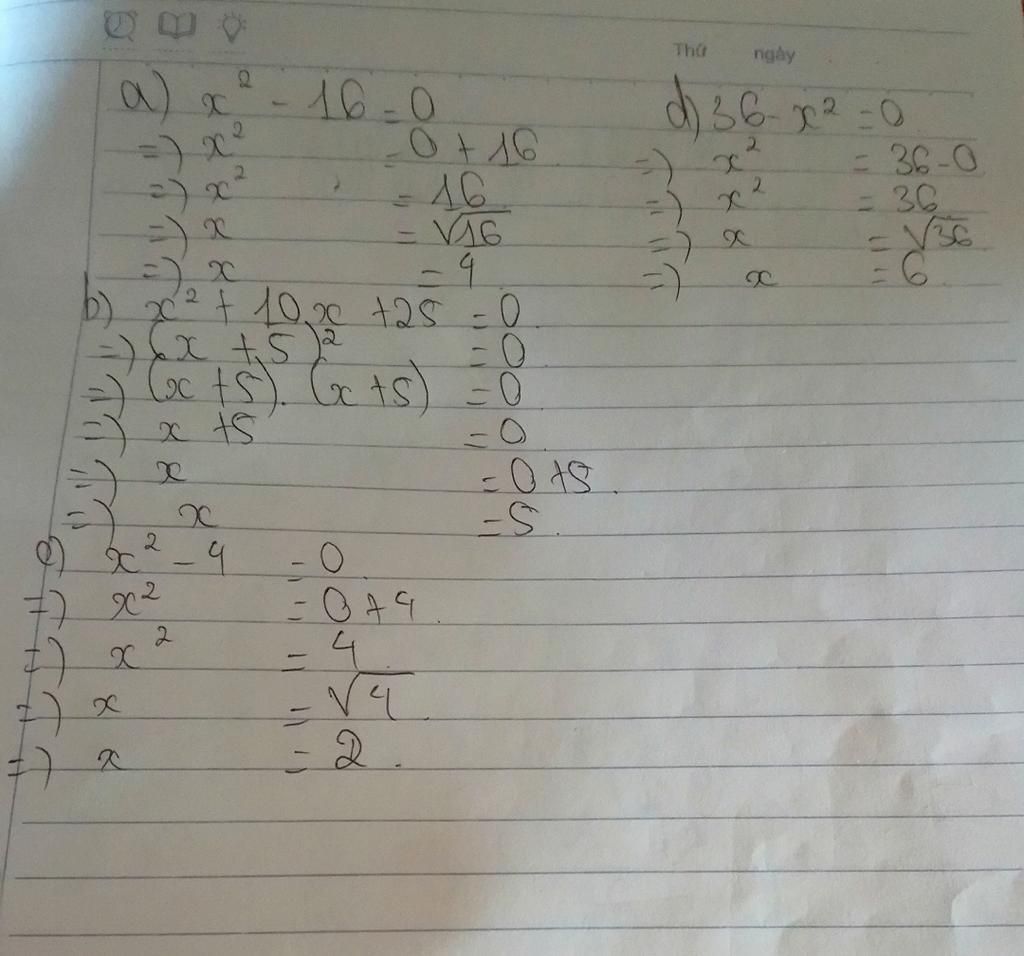 Thứ ngày
a) x² - 16 = 0
=) x² = 0 + 16
=) x² = 16
=) x = √16
=) x = 4
b) x² + 10x + 25 = 0
=) (x + 5)² = 0
=) (x + 5). (x + 5) = 0
=) x + 5 = 0
=) x = 0 + 5.
=) x = 5.
c) x² - 4 = 0
=) x² = 0 + 4.
=) x² = 4
=) x = √4.
=) x = 2.
d) 36 - x² = 0
=) x² = 36 - 0
=) x² = 36
=) x = √36
=) x = 6